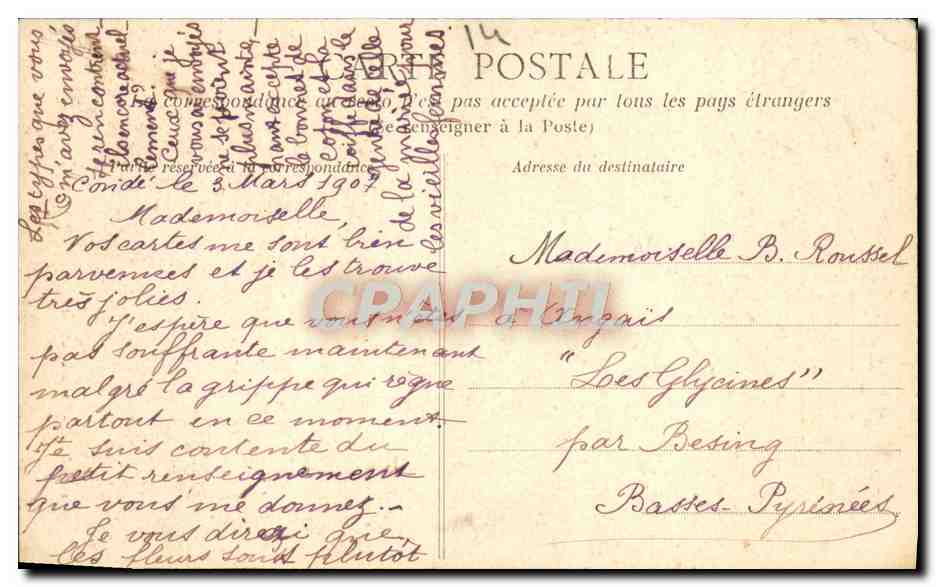 14
CARTE POSTALE
La correspondance au recto n'est pas acceptée par tous les pays étrangers
(Se renseigner à la Poste)
Partie réservée à la correspondance
Adresse du destinataire
Condé le 3 Mars 1907
Mademoiselle,
Vos cartes me sont bien
parvenues et je les trouve
très jolies.
J'espère que vous n'êtes
pas souffrante maintenant
malgré la grippe qui règne
partout en ce moment.
Je suis contente du
petit renseignement
que vous me donnez.-
Je vous dirai que,
les fleurs sont plutôt
Les types que vous
m'avez envoyés
se rencontrent
actuel
Ceux que je
vous ai envoyés
ne se portent
plus mainte-
nant excepté
le bonnet de
coton est la
coiffe dans le
genre de celle
de la mariée pour
les vieilles femmes
Mademoiselle B. Roussel
à Angaïs
"Les Glycines"
par Besing
Basses-Pyrénées
CPAPHIL